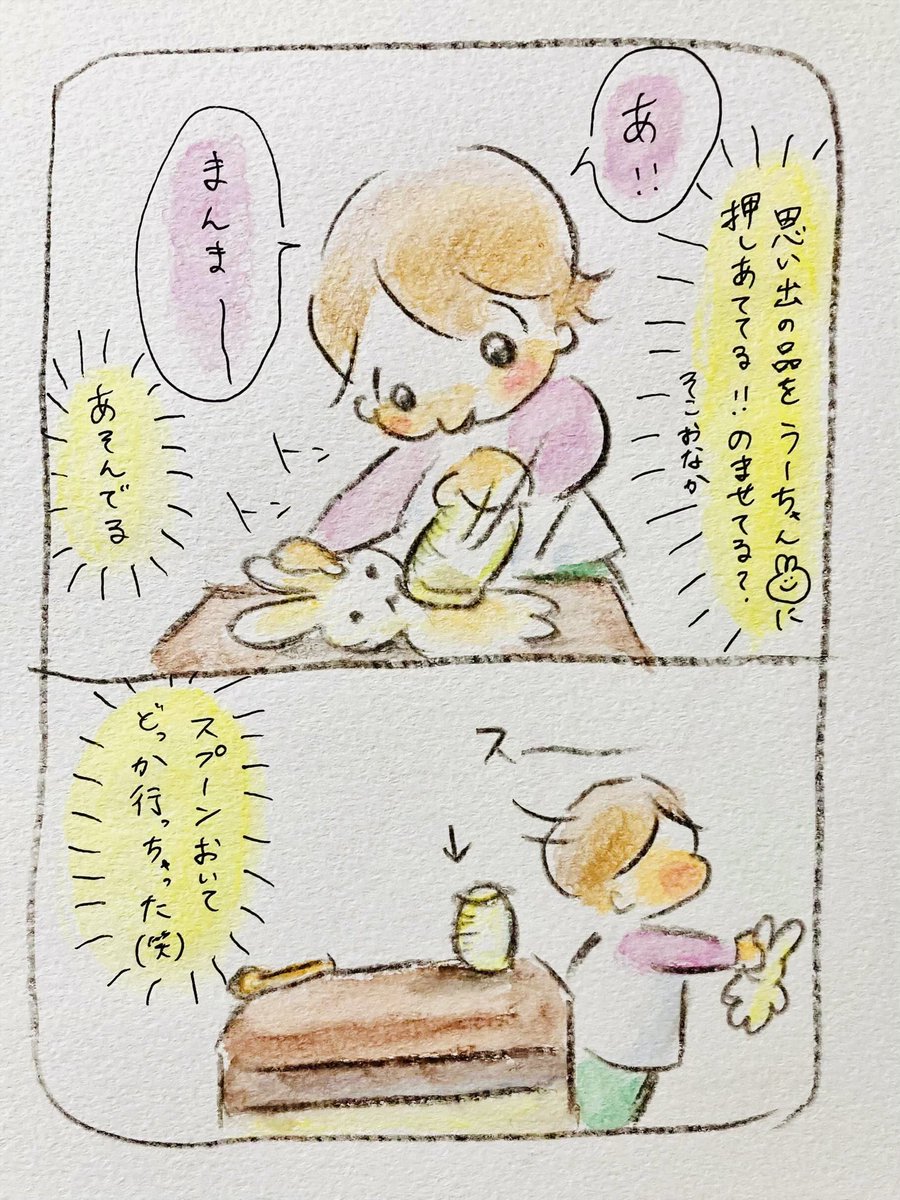 あ!!
思い出の品をうーちゃんに
押しあててる!!のませてる?
そこおなか
まんまー
トン
トン
あそんでる
スー
スプーンおいて
どっか行っちゃった(笑)